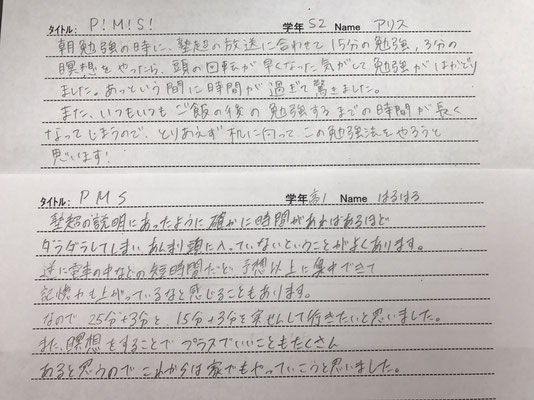 タイトル: P!M!S! 学年 S2 Name アリス
朝勉強の時に、塾超の放送に合わせて15分の勉強,3分の
瞑想をやったら、頭の回転が早くなった気がして勉強がはかどり
ました。あっという間に時間が過ぎて驚きました。
また、いつもいつもご飯の後の勉強するまでの時間が長く
なってしまうので、とりあえず机に向って、この勉強法をやろうと
思います!
タイトル: PMS 学年 高1 Name はるはる
塾超の説明にあったように確かに時間があればあるほど
ダラダラしてしまい、あんまり頭に入っていないということがよくあります。
逆に電車の中などの短時間だと予想以上に集中できて
記憶力も上がっているなと感じることもあります。
なので 25分+3分と、15分+3分を実せんして行きたいと思いました。
また、瞑想をすることでプラスでいいこともたくさん
あると思うのでこれからは家でもやっていこうと思いました。